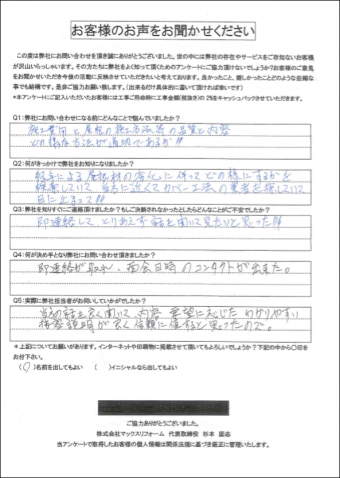 お客様のお声をお聞かせください
この度は弊社にお問い合わせを頂き誠にありがとうございました。世の中には弊社の存在やサービスをご存知ないお客様
が沢山いらっしゃいます。その方たちに弊社をよく知って頂くためのアンケートにご協力頂けないでしょうか？お客様のご意見
をお聞かせいただき今後の活動に反映させていただきたいと考えております。良かったこと、嬉しかったことどのような些細な
事でも結構です。是非ご協力お願い致します。（出来るだけ具体的に書いて頂ければ幸いです）
＊本アンケートにご記入いただいたお客様には工事ご用命時に工事金額(税抜き)の2%をキャッシュバックさせていただきます。
Q1：弊社にお問い合わせになる前にどんなことで悩んでいましたか？
施工費用と屋根の施工方法等の品質と内容
どの様な方法が適切であるか!!
Q2：何がきっかけで弊社をお知りになりましたか？
による屋根材の劣化に伴ってどの様にするかを
検索していて 近くでカバー工法の業者を探していて
目に止まって!!
Q3：弊社を知りすぐにご連絡頂けましたか？もしご決断されなかったとしたらどんなことがご不安でしたか？
即連絡して、とりあえず話を聞いて見たいと思った!!
Q4：何が決め手となり弊社にお問い合わせ頂きましたか？
即連絡が取れ、面会日時のコンタクトが出来た。
Q5：実際に弊社担当者がお伺いしていかがでしたか？
当初話を良く聞いて、内容 要望に応じた わかりやすい
説明が良く 信頼に値すると思ったので。
＊上記についてお願いがあります。インターネットや印刷物に掲載させて頂いてもよろしいでしょうか？下記の中から〇印を
お付け下さい。
（〇）名前を出してもよい　（　）イニシャルなら出してもよい
ご協力ありがとうございました。
株式会社マックスリフォーム　代表取締役　杉本　匡志
当アンケートで取得したお客様の個人情報は関係法規に基づき厳正に管理いたします。